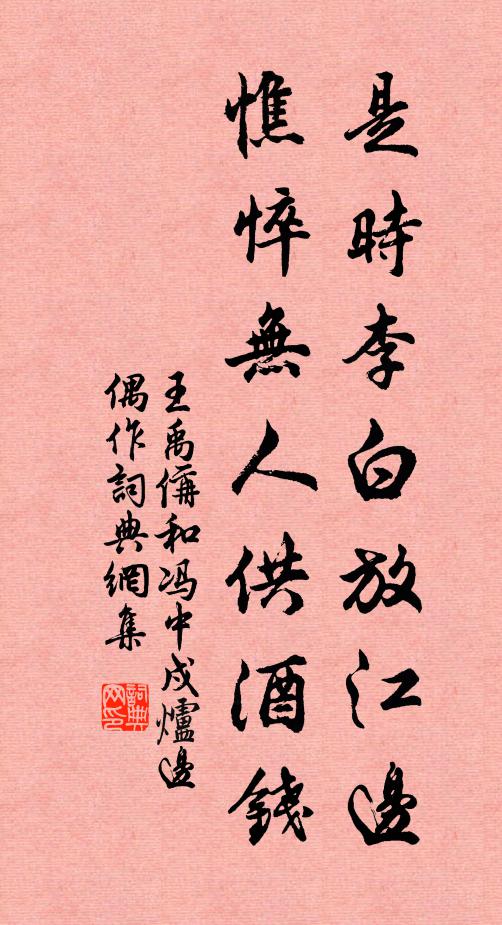 是時李白放江邊
憔悴無人供酒錢
王禹偁和冯中戍爐邊
偶作詞典網集
詞典
网印